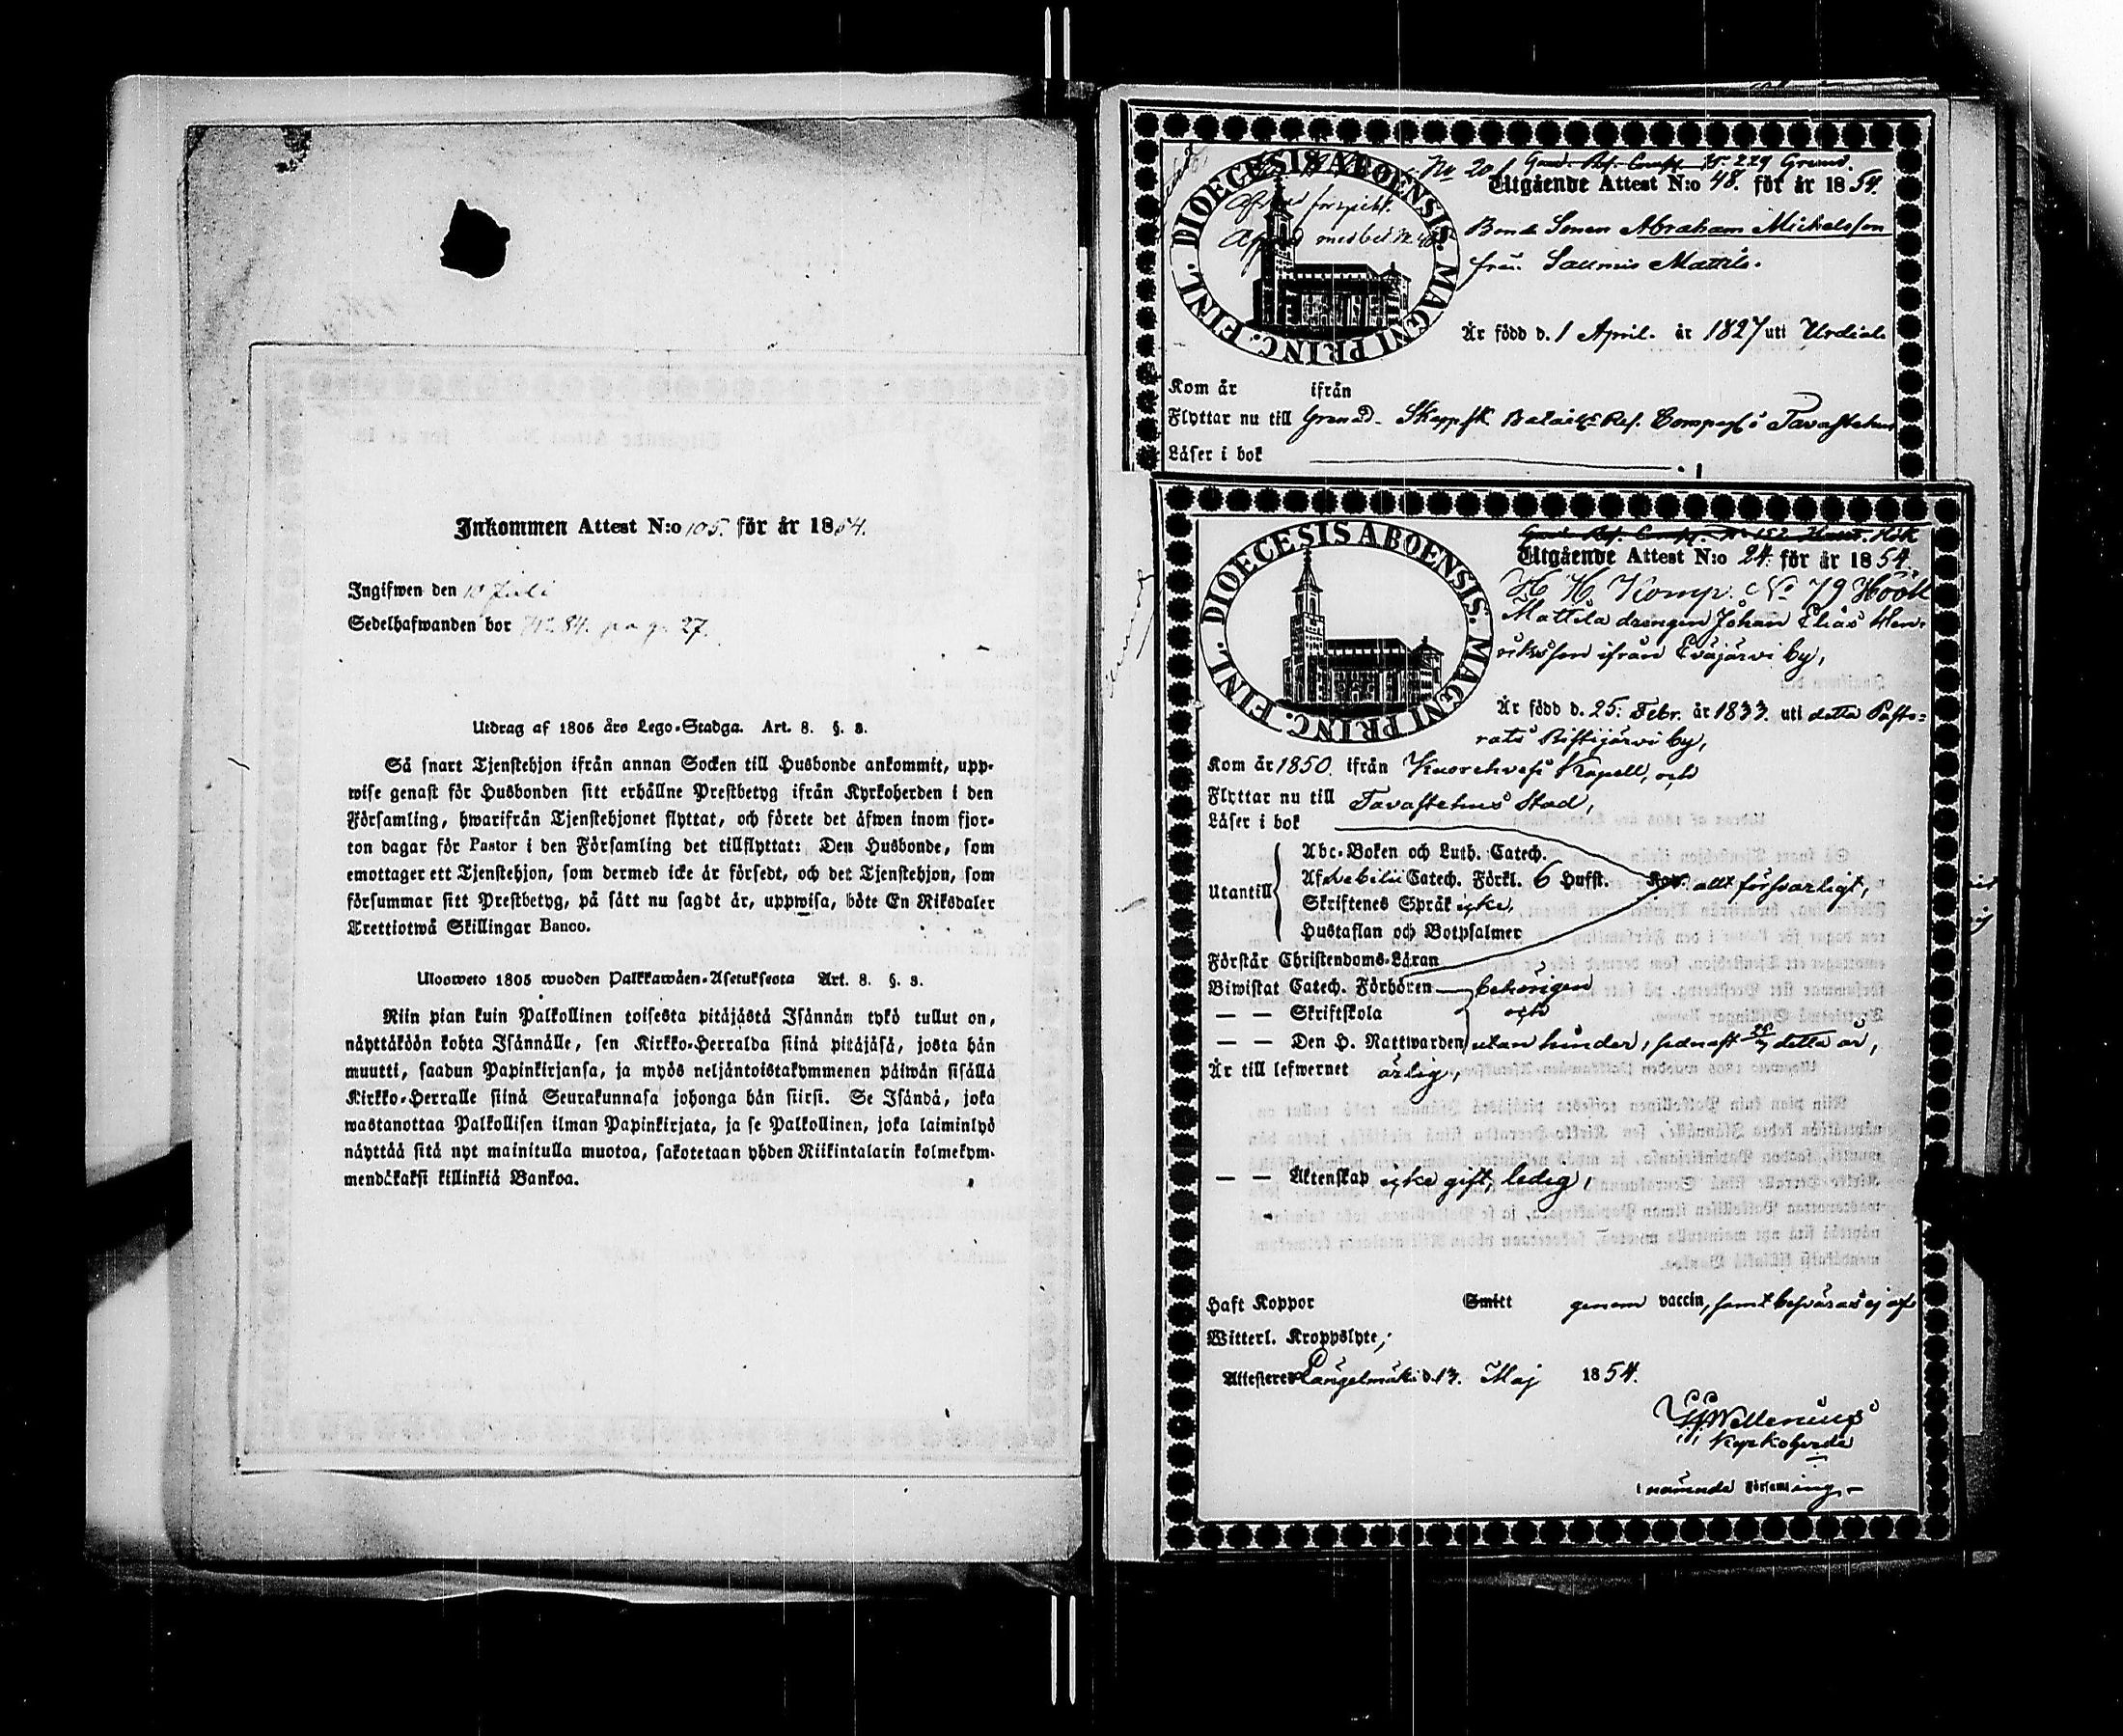 Inkommen Attest N:o 105. för år 1854.
Ingifwen den 10 Juli
Sedelhafwanden bor N:o 84. pag. 27.
Utdrag af 1805 års Lego-Stadga. Art. 8. §. 3.
Så snart Tjenstehjon ifrån annan Socken till Husbonde ankommit, upp-
wise genast för Husbonden sitt erhållne Prestbetyg ifrån Kyrkoherden i den
Församling, hwarifrån Tjenstehjonet flyttat, och förete det äfwen inom fjor-
ton dagar för Pastor i den Församling det tillflyttat: Den Husbonde, som
emottager ett Tjenstehjon, som dermed icke är försedt, och det Tjenstehjon, som
försummar sitt Prestbetyg, på sätt nu sagdt är, uppwisa, böte En Riksdaler
Trettiotwå Skillingar Banco.
Ulosweto 1805 wuoden Palkkawäen-Asetuksesta Art. 8. §. 3.
Niin pian kuin Palkollinen toisesta pitäjästä Isännän tykö tullut on,
näyttäköön kohta Isännälle, sen Kirkko-Herralda siinä pitäjäsä, josta hän
muutti, saadun Papinkirjansa, ja myös neljäntoistakymmenen päiwän sisällä
Kirkko-Herralle siinä Seurakunnasa johonga hän siirsi. Se Isändä, joka
wastanottaa Palkollisen ilman Papinkirjata, ja se Palkollinen, joka laiminlyö
näyttää sitä nyt mainitulla muotoa, sakotetaan yhden Riikintalarin kolmekym-
mendäkaksi killinkiä Bankoa.
DIOECESIS ABOENSIS. MAGNI PRINC. FINL.
Gren. Ref. Comp. N:o 229 Grund.
Utgående Attest N:o 48. för år 1854.
Bonde Sonen Abraham Mickelsson
från Saurais Mattila.
Är född d. 1 April. år 1827 uti Urdiala
Kom år ifrån
Flyttar nu till Grenad. Skarpsk. Batail:s Ref. Compagni i Tavastehus
Läser i bok
DIOECESIS ABOENSIS. MAGNI PRINC. FINL.
Gren. Ref. Comp. N:o 152 Höök
Utgående Attest N:o 24. för år 1854.
H H Komp. No 79 Höök
Mattila drengen Johan Elias Hen-
riksson ifrån Eväjärvi by,
Är född d. 25: Febr. år 1833. uti detta Pasto-
rats Ristijärvi by,
Kom år 1850. ifrån Kuorehvesi Kapell, och
Flyttar nu till Tavastehus Stad,
Läser i bok
Utantill
Abc-Boken och Luth. Catech.
Af Catech. Förkl. 6 Hufst. allt försvarligt,
Skriftenes Språk icke,
Hustaflan och Botpsalmer
Förstår Christendoms-Läran
Biwistat Catech. Förhören behörigen
— — Skriftskola och
— — Den H. Nattwarden utan hinder, sednast detta år,
Är till lefwernet ärlig,
— — Äktenskap icke gift, ledig,
Haft Koppor Smitt genom vaccin, samt besväras ej af
Witterl. Kroppslyte;
Attesteres Längelmäki d. 13. Maj 1854.
Wallenius
Kyrkoherde
i nämnde Församling.